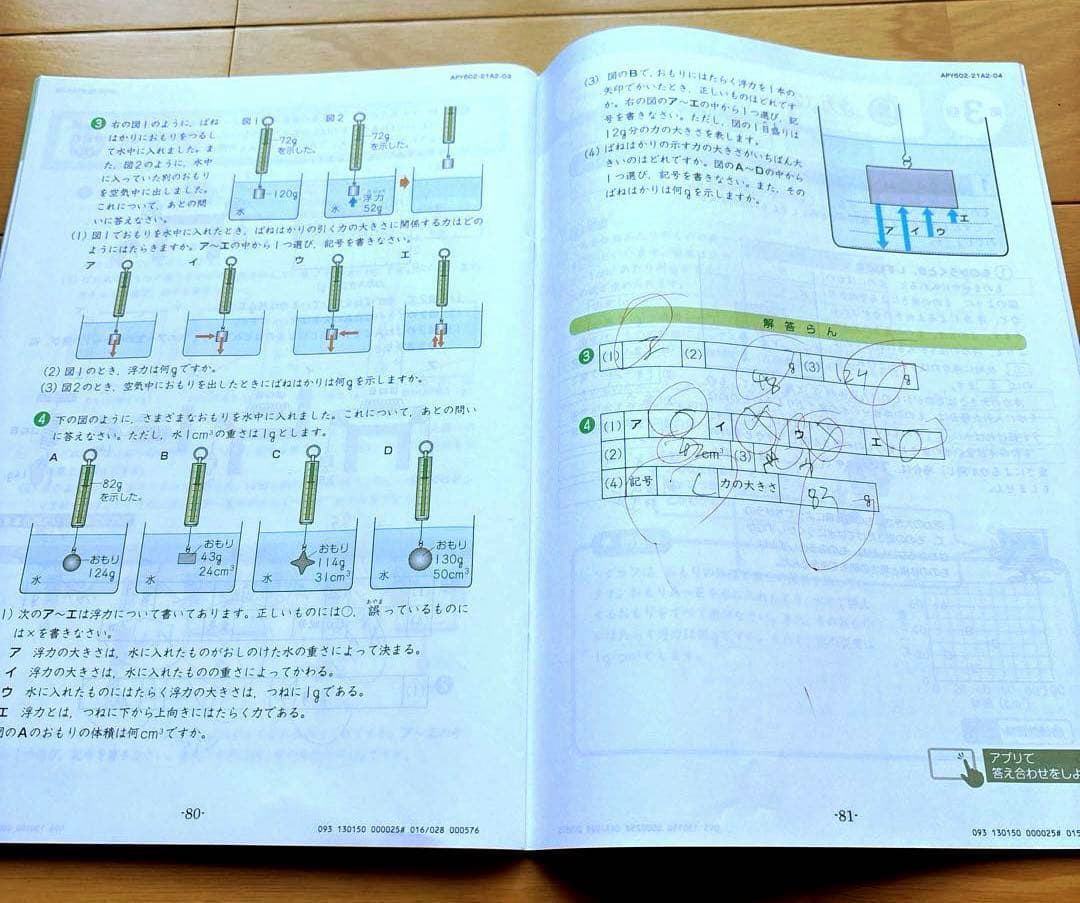 APY602-21A2-03
3 右の図1のように，ばね
はかりにおもりをつるし
て水中に入れました。ま
た，図2のように，水中
に入っていた別のおもり
を空気中に出しました。
これについて，あとの問
いに答えなさい。
図1
72g
を示した。
120g
水
図2
72g
を示した。
浮力
52g
水
(1) 図1でおもりを水中に入れたとき，ばねはかりの引く力の大きさに関係する力はどの
ようにはたらきますか。ア〜エの中から1つ選び，記号を書きなさい。
ア イ ウ エ
(2) 図1のとき，浮力は何gですか。
(3) 図2のとき，空気中におもりを出したときにばねはかりは何gを示しますか。
4 下の図のように，さまざまなおもりを水中に入れました。これについて，あとの問い
に答えなさい。ただし，水1cm³の重さは1gとします。
A B C D
82g
を示した。
おもり
124g
水
おもり
43g
24cm³
水
おもり
114g
31cm³
水
おもり
130g
50cm³
水
1) 次のア〜エは浮力について書いてあります。正しいものには○，誤っているものに
あやま
は×を書きなさい。
ア 浮力の大きさは，水に入れたものがおしのけた水の重さによって決まる。
イ 浮力の大きさは，水に入れたものの重さによってかわる。
ウ 水に入れたものにはたらく浮力の大きさは，つねに1gである。
エ 浮力とは，つねに下から上向きにはたらく力である。
図のAのおもりの体積は何cm³ですか。
-80-
093 130150 000025# 016/028 000576
APY602-21A2-04
(3) 図のBで，おもりにはたらく浮力を1本の
矢印でかいたとき，正しいものはどれです
か。右の図のア〜エの中から1つ選び，記
号を書きなさい。ただし，図の1目盛りは
12g分の力の大きさを表します。
(4) ばねはかりの示す力の大きさがいちばん大
きいのはどれですか。図のA〜Dの中から
1つ選び，記号を書きなさい。また，その
ばねはかりは何gを示しますか。
ア イ ウ エ
解答らん
3 (1) エ (2) 48 g (3) 124 g
4 (1) ア ○ イ × ウ × エ ○
(2) 42 cm³ (3) ウ
(4) 記号 C 力の大きさ 83 g
アプリで
答え合わせをしよ
-81-
093 130150 000025# 015